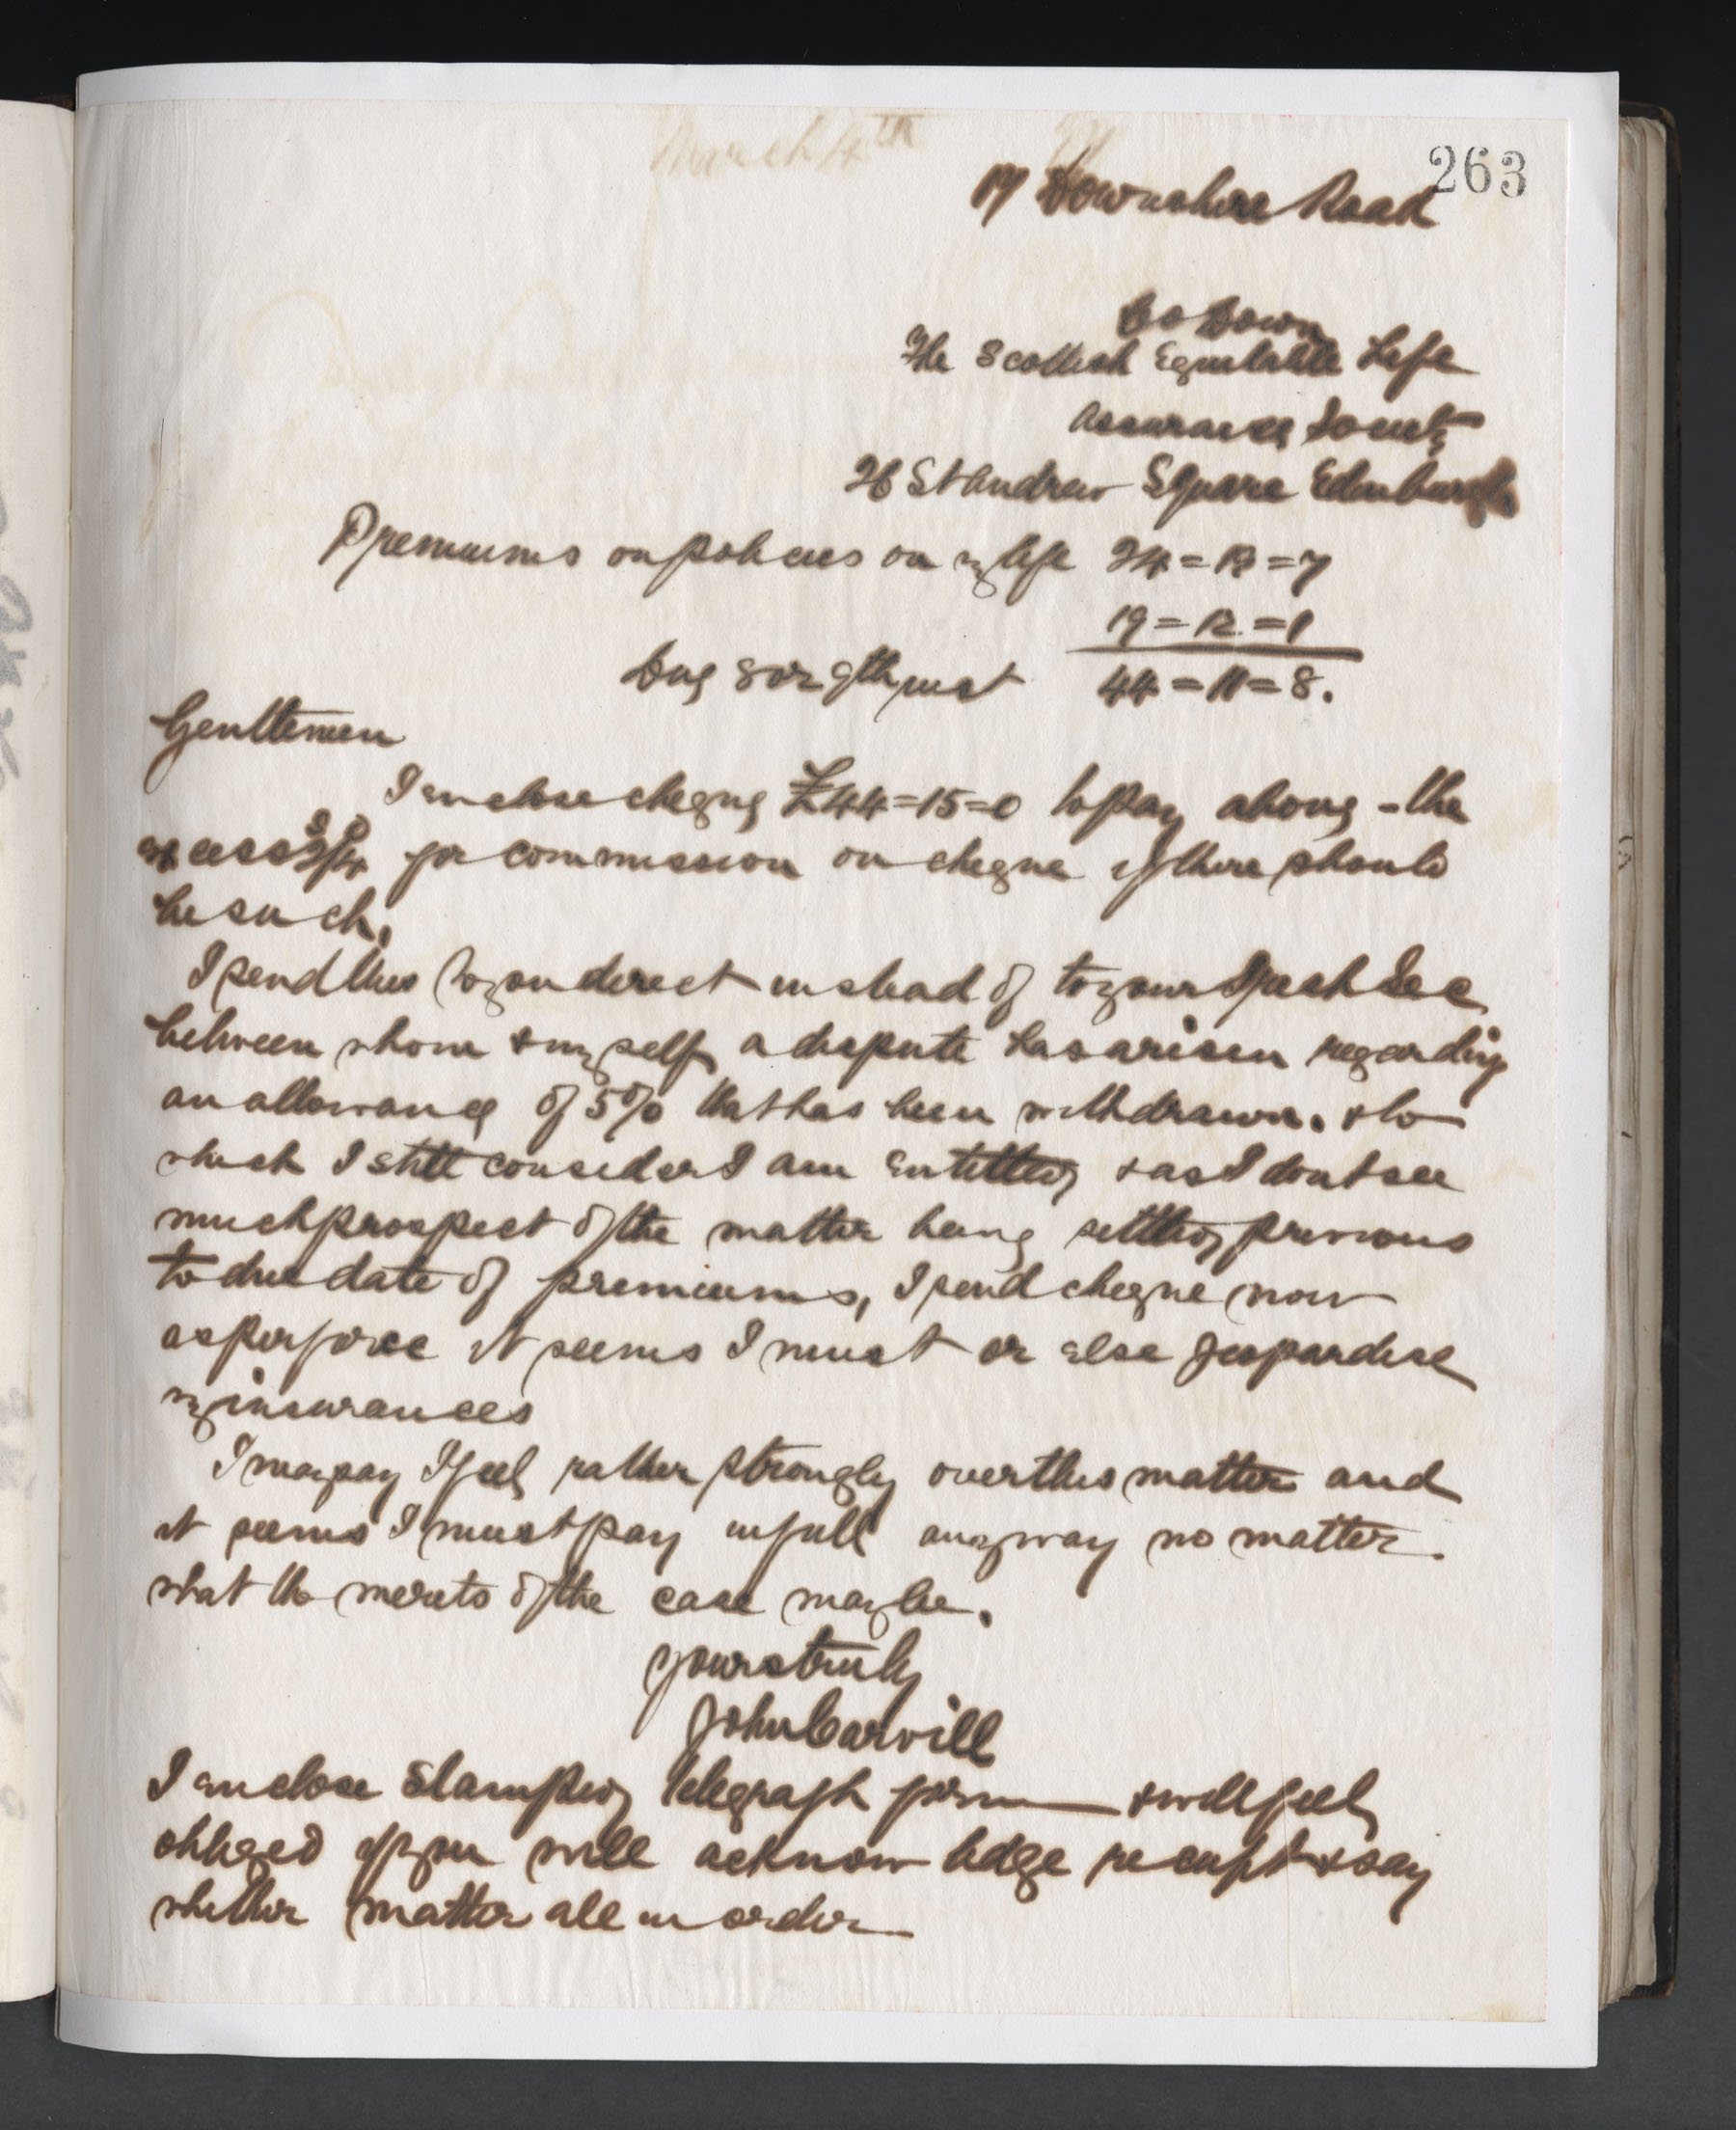 March 4th
263
17 Downshire Road
Co Down
The Scottish Equitable Life
Assurance Society
26 St Andrew Square Edinburgh
Premiums on policies on my life 24=19=7
19=12=1
Due 8 or 9th inst 44=11=8.
Gentlemen
I enclose cheque £44=15=0 to pay above - the
excess 3/4 for commission on cheque if there should
be such.
I send this to you direct instead of to your Irish Sec
between whom & myself a dispute has arisen regarding
an allowance of 5% that has been withdrawn. & to
which I still consider I am entitled & as I dont see
much prospect of the matter being settled previous
to due date of premiums, I send cheque now
as perforce it seems I must or else jeopardise
my insurances
I may say I feel rather strongly over this matter and
it seems I must pay in full anyway no matter
what the merits of the case may be.
Yours truly
John Carvill
I enclose stamped telegraph form & will feel
obliged if you will acknowledge receipt & say
whether matter all in order